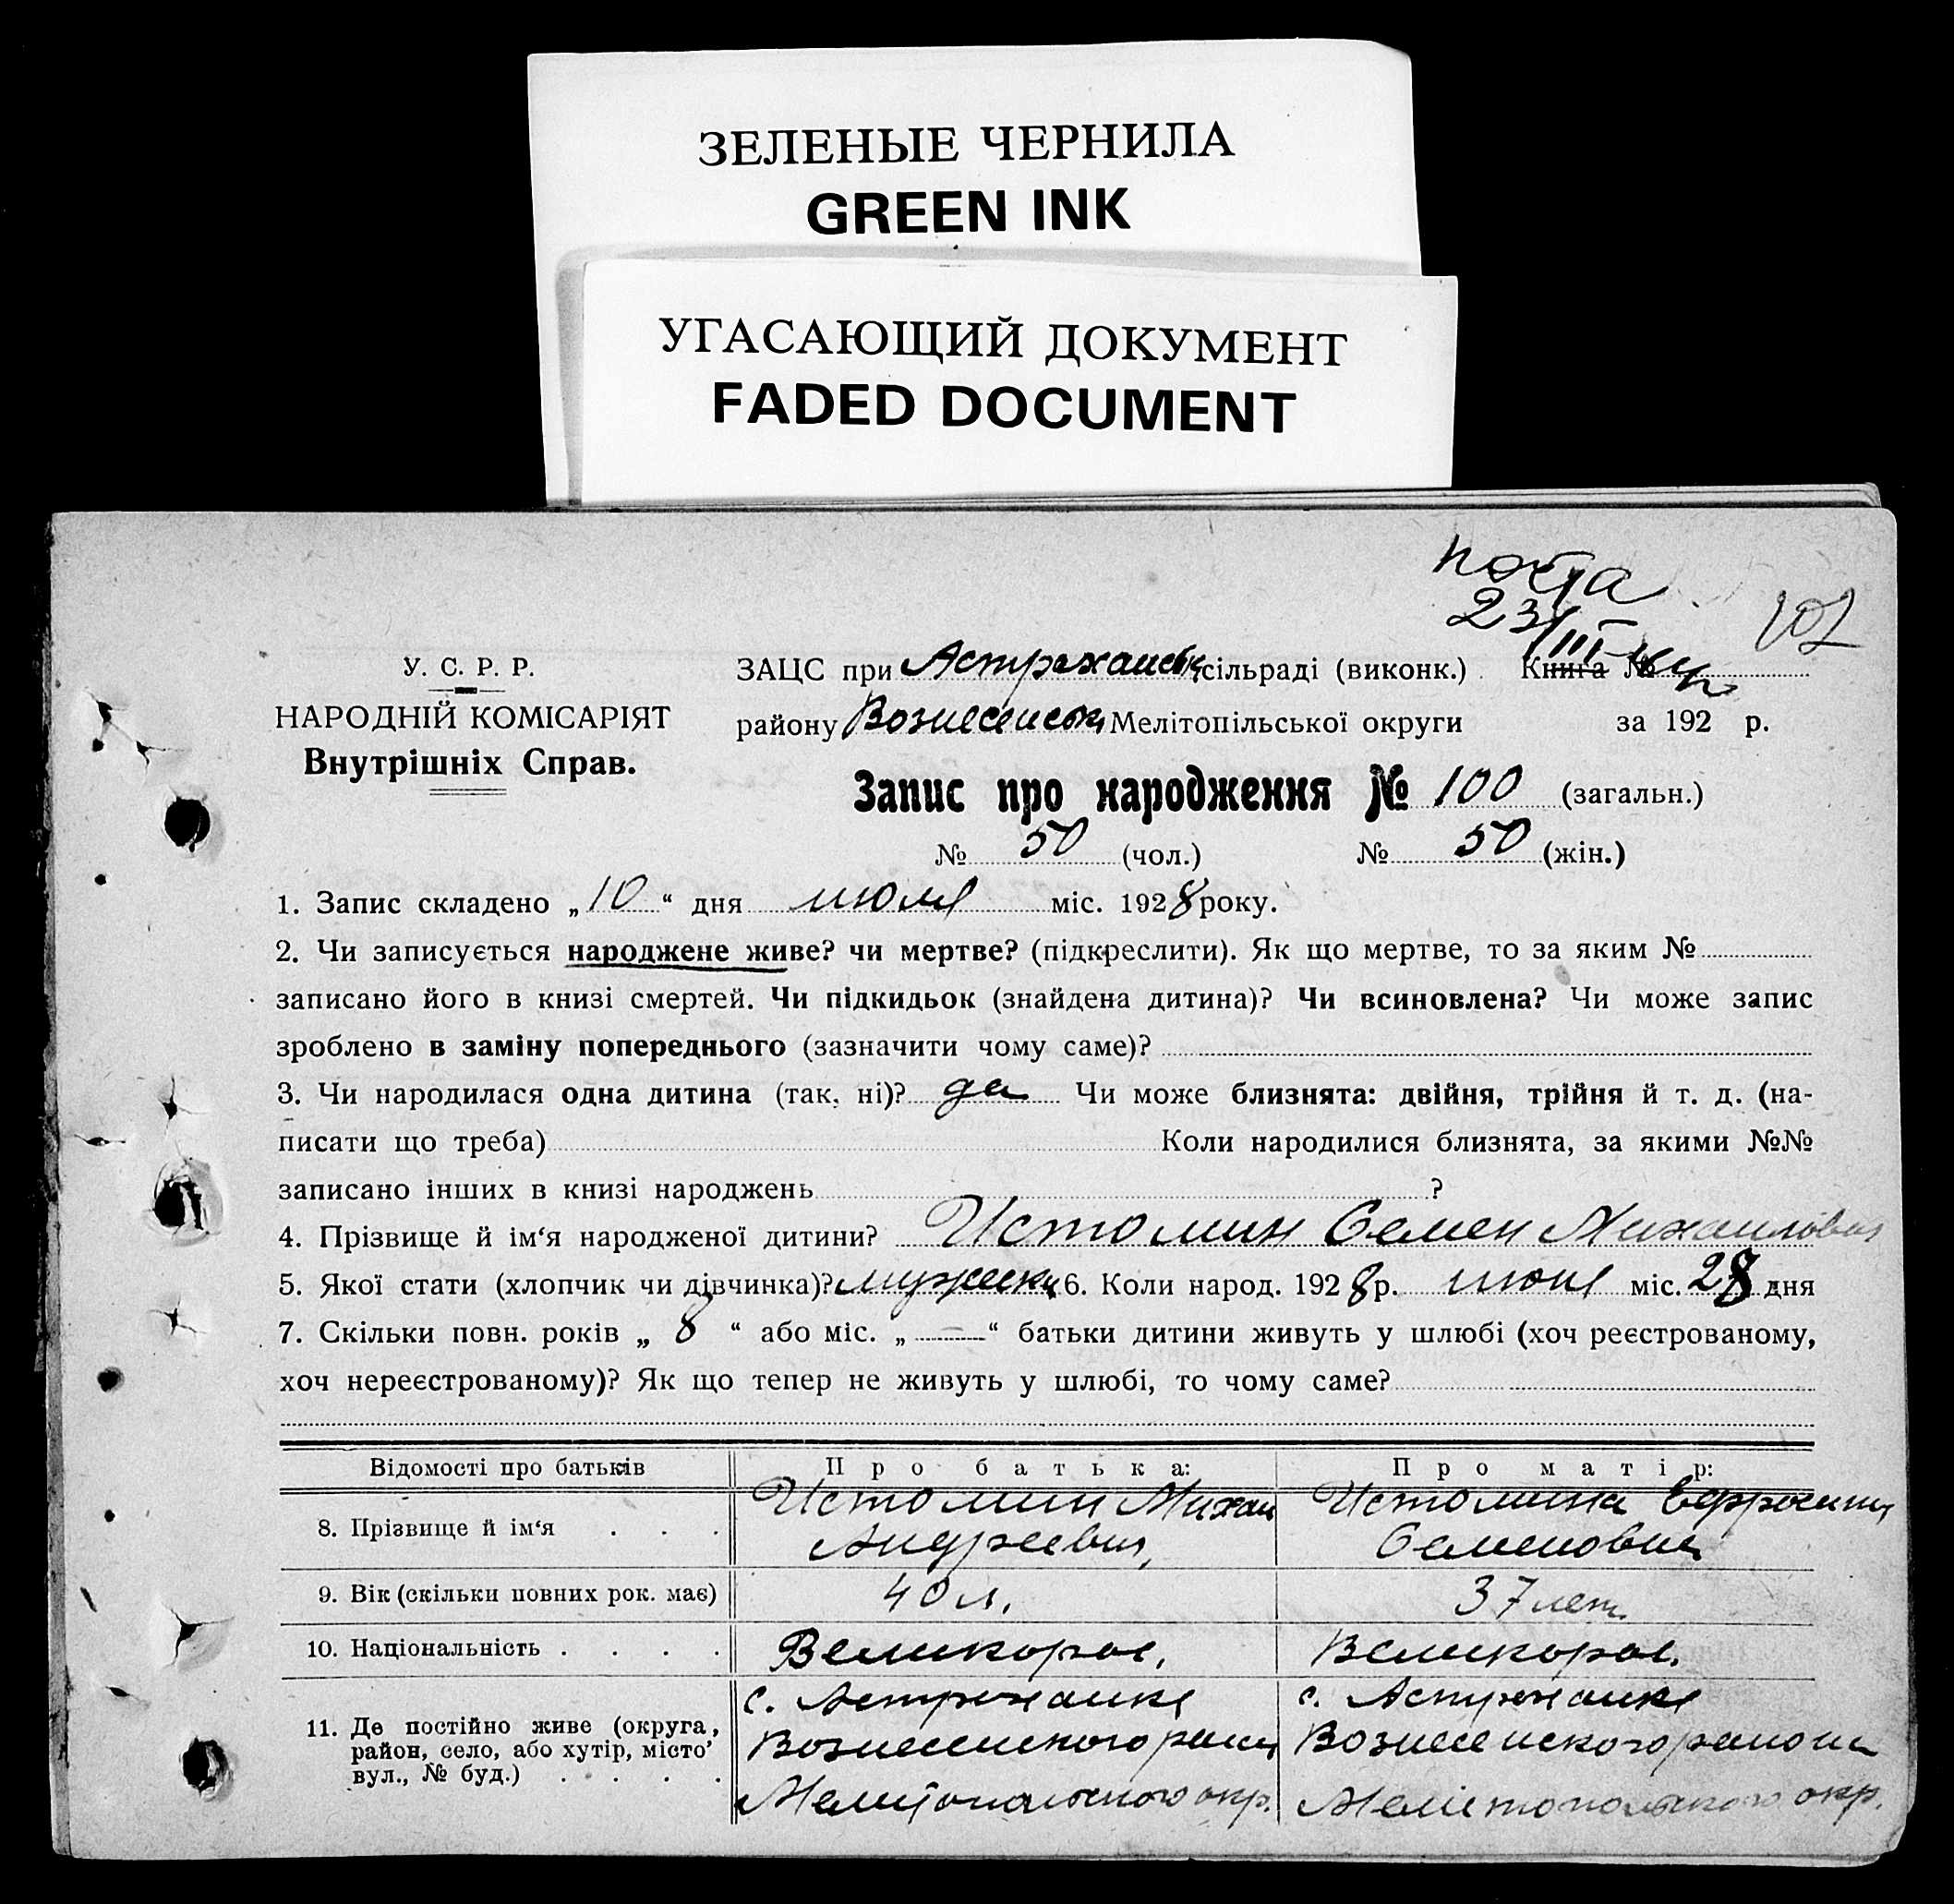 ЗЕЛЕНЫЕ ЧЕРНИЛА
GREEN INK
УГАСАЮЩИЙ ДОКУМЕНТ
FADED DOCUMENT
23/III
101
У. С. Р. Р.
НАРОДНІЙ КОМІСАРІЯТ
Внутрішніх Справ.
ЗАЦС при Астраханск сільраді (виконк.) Книга №
району Вознесенск Мелітопільської округи за 192 р.
Запис про народження № 100 (загальн.)
№ 50 (чол.) № 50 (жін.)
1. Запис складено „10“ дня июля міс. 1928 року.
2. Чи записується народжене живе? чи мертве? (підкреслити). Як що мертве, то за яким №
записано його в книзі смертей. Чи підкидьок (знайдена дитина)? Чи всиновлена? Чи може запис
зроблено в заміну попереднього (зазначити чому саме)?
3. Чи народилася одна дитина (так, ні)? да Чи може близнята: двійня, трійня й т. д. (на-
писати що треба) Коли народилися близнята, за якими №№
записано інших в книзі народжень ?
4. Прізвище й ім‘я народженої дитини? Истомин Семен Михаилович
5. Якої стати (хлопчик чи дівчинка)? мужски 6. Коли народ. 1928 р. июня міс. 28 дня
7. Скільки повн. років „ 8 “ або міс. „ — “ батьки дитини живуть у шлюбі (хоч реєстрованому,
хоч нереєстрованому)? Як що тепер не живуть у шлюбі, то чому саме?
Відомості про батьків Про батька: Про матір:
8. Прізвище й ім‘я . . . Истомин Михаил Истомина Ефросиния
Андреевич Семеновна
9. Вік (скільки повних рок. має) 40 л. 37 лет.
10. Національність . . . . Великорос. Великорос.
11. Де постійно живе (округа, район, село, або хутір, місто, вул., № буд.) . . . . с. Астраханка с. Астраханка
Вознесенского района Вознесенского района
Мелитопольского окр. Мелитопольского окр.